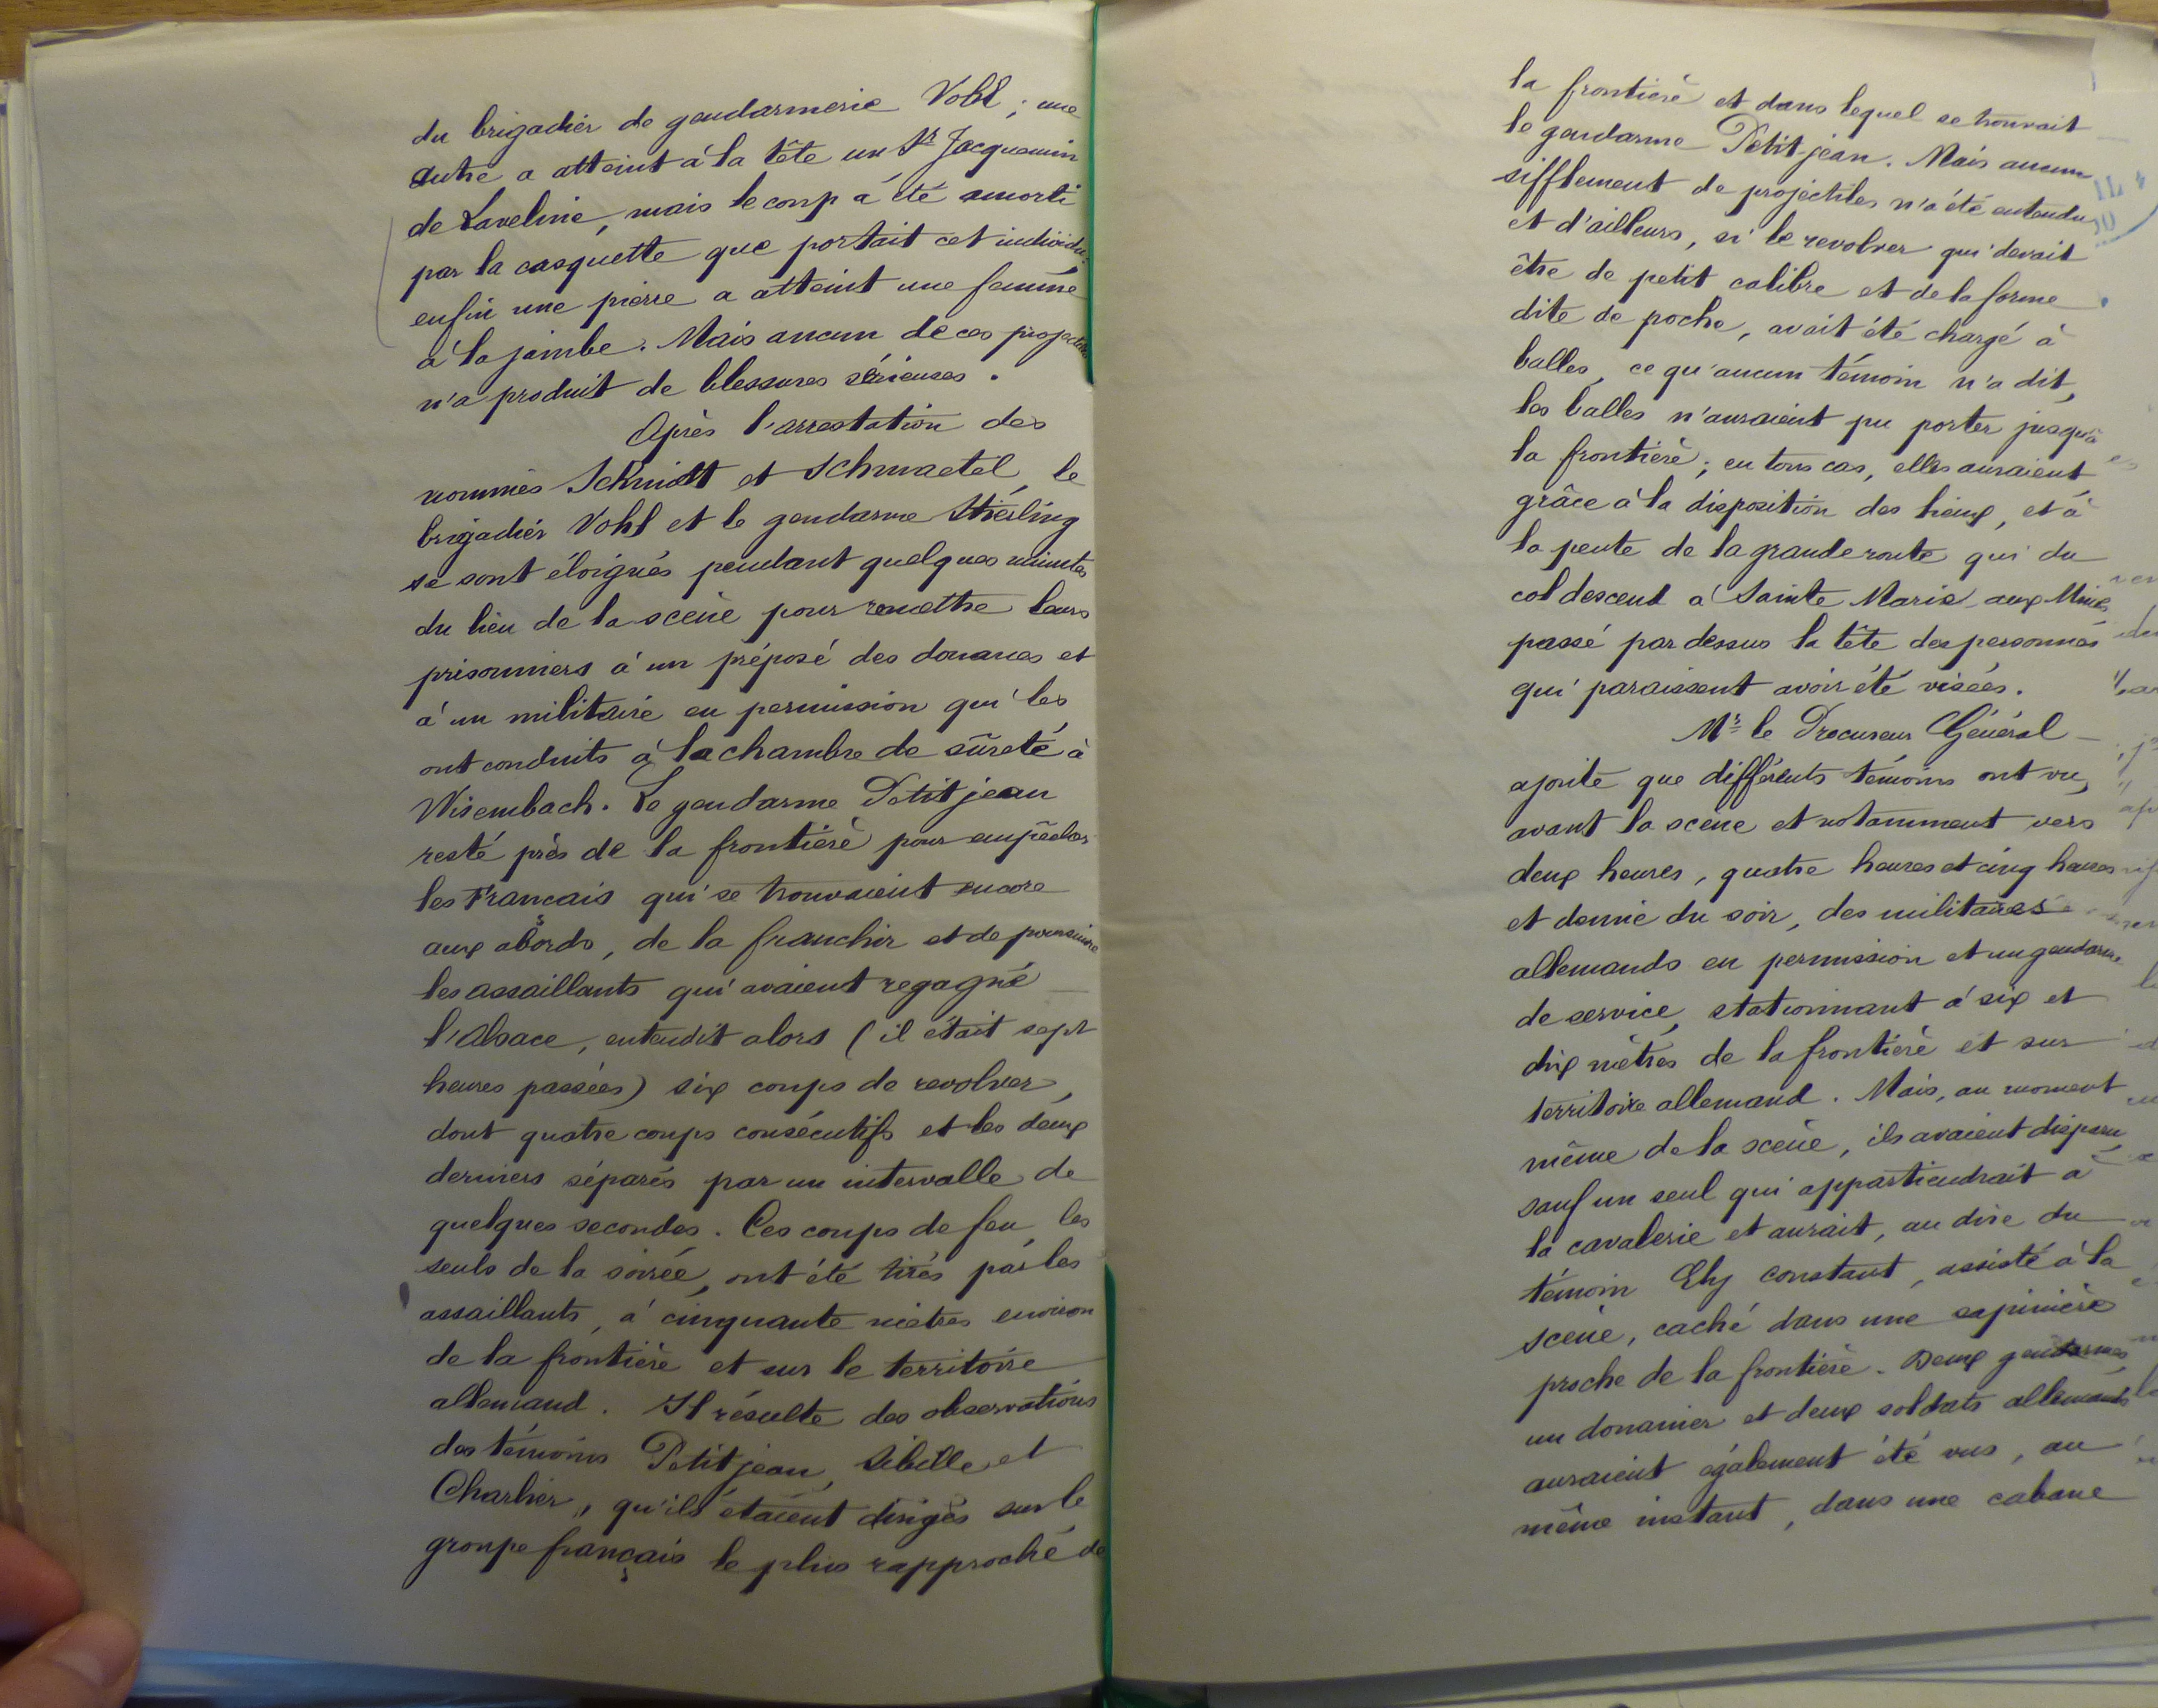 du brigadier de gendarmerie Vohl ; une
autre a atteint à la tête un Sr Jacquemin
de Laveline, mais le coup a été amorti
par la casquette que portait cet individu.
enfin une pierre a atteint une femme
à la jambe. Mais aucun de ces projectiles
n'a produit de blessures sérieuses.
Après l'arrestation des
nommés Schmidt et Schmaetel, le
brigadier Vohl et le gendarme Stiesling
se sont éloignés pendant quelques minutes
du lieu de la scène pour remettre leurs
prisonniers à un préposé des douanes et
à un militaire en permission qui les
ont conduits à la chambre de sûreté à
Wisembach. Le gendarme Petitjean
resté près de la frontière pour empêcher
les Français qui se trouvaient encore
aux abords, de la franchir et de poursuivre
les assaillants qui avaient regagné
l'Alsace, entendit alors (il était sept
heures passées) six coups de revolver,
dont quatre coups consécutifs et les deux
derniers séparés par un intervalle de
quelques secondes. Ces coups de feu, les
seuls de la soirée, ont été tirés par les
assaillants, à cinquante mètres environ
de la frontière et sur le territoire
allemand. Il résulte des observations
des témoins Petitjean, Sibille et
Charlier, qu'ils étaient dirigés sur le
groupe français le plus rapproché de
la frontière et dans lequel se trouvait
le gendarme Petitjean. Mais aucun
sifflement de projectiles n'a été entendu
et d'ailleurs, si le revolver qui devait
être de petit calibre et de la forme
dite de poche, avait été chargé à
balles, ce qu'aucun témoin n'a dit,
les balles n'auraient pu porter jusqu'à
la frontière ; en tous cas, elles auraient
grâce à la disposition des lieux, et à
la pente de la grande route qui du
col descend à Sainte Marie-aux-Mines,
passé par dessus la tête des personnes
qui paraissent avoir été visées.
Mr le Procureur Général
ajoute que différents témoins ont vu,
avant la scène et notamment vers
deux heures, quatre heures et cinq heures
et demie du soir, des militaires
allemands en permission et un gendarme
de service, stationnant à six et
dix mètres de la frontière et sur
territoire allemand. Mais, au moment
même de la scène, ils avaient disparu
sauf un seul qui appartiendrait à
la cavalerie et aurait, au dire du
témoin Ely Constant, assisté à la
scène, caché dans une sapinière
proche de la frontière. Deux gendarmes,
un douanier et deux soldats allemands
auraient également été vus, au
même instant, dans une cabane